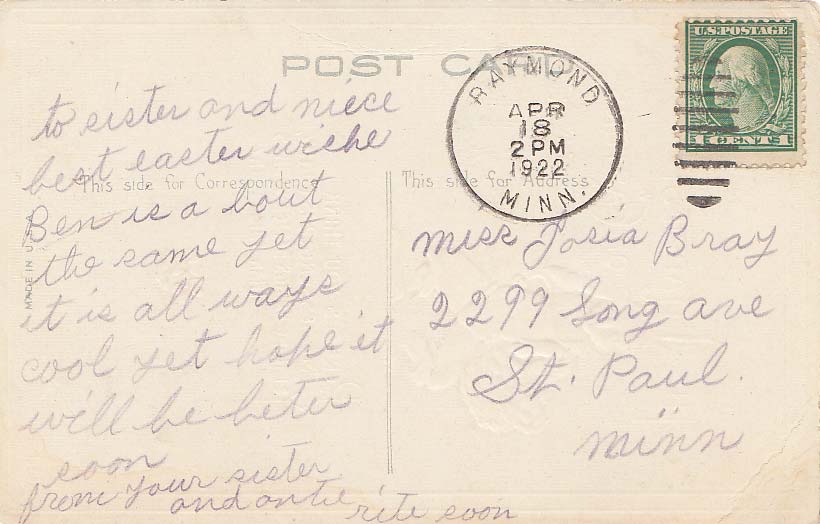 POST CARD
RAYMOND
APR
18
2 PM
1922
MINN.
U.S. POSTAGE
1 CENTS 1
to sister and niece
best easter wiche
This side for Correspondence
Ben is a bout
the same yet
it is all ways
cool yet hope it
will be beter
soon
from your sister
and ontie rite soon
MADE IN U.S.A.
This side for Address
Miss Josia Bray
2299 Long ave
St. Paul.
Minn